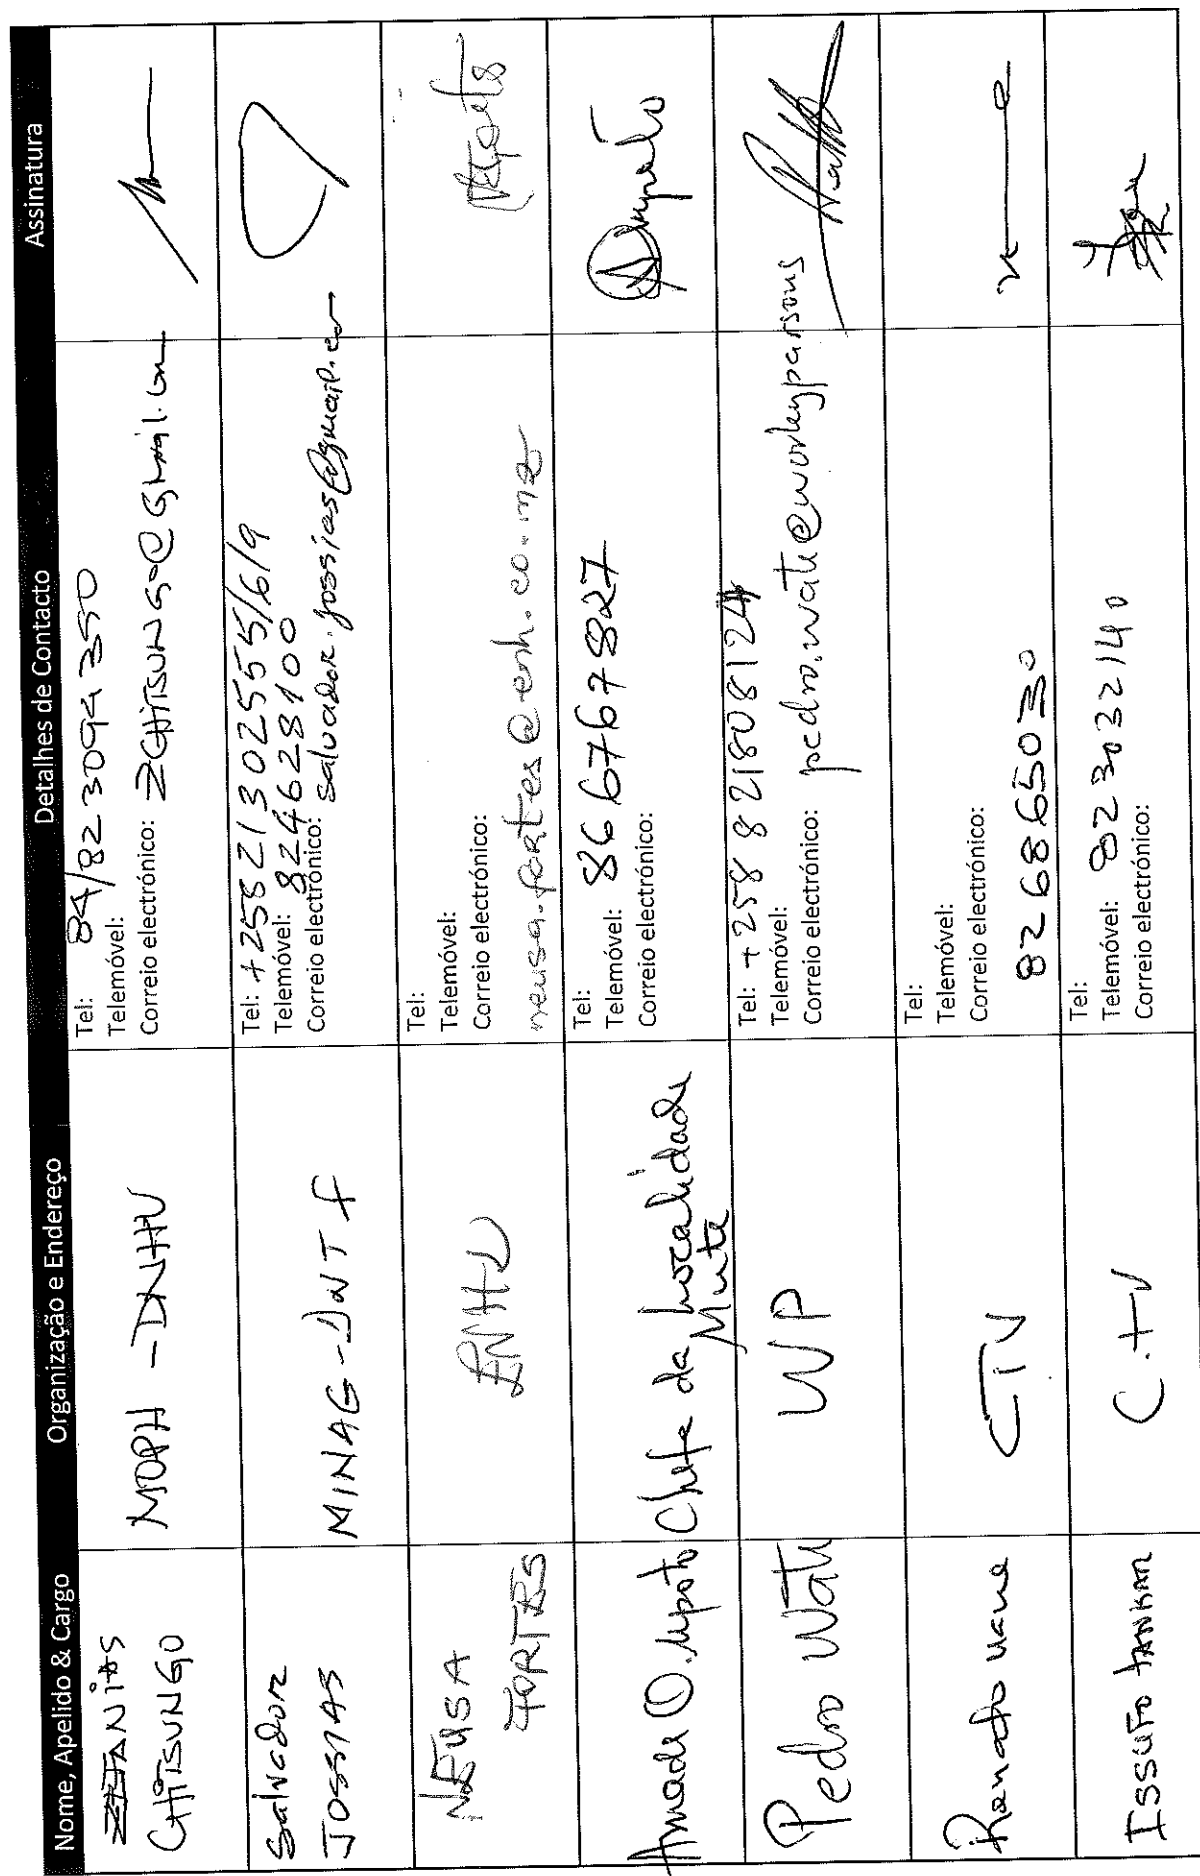 Nome, Apelido & Cargo Organização e Endereço Detalhes de Contacto Assinatura
CHITSUNGO
MOPH - DNHU
Tel: 84/82 3094350
Telemóvel:
Correio electrónico: ZCHITSUNGO@Gmail.com
Salvador
JOSSIAS
MINAG - DNTF
Tel: +258 21302555/6/9
Telemóvel: 824628100
Correio electrónico: salvador.jossias@gmail.com
NEUSA
FORTES
ENH
Tel:
Telemóvel:
Correio electrónico:
neusa.fortes@enh.co.mz
Amade O. Mpoto
Chefe da Localidade
Mute
Tel:
Telemóvel: 866767827
Correio electrónico:
Pedro Wate
WP
Tel: +258 82180812
Telemóvel:
Correio electrónico: pedro.wate@worleyparsons
CTV
Tel:
Telemóvel:
Correio electrónico:
826865030
Issufo Tankar
C.T.V
Tel:
Telemóvel: 823032140
Correio electrónico: